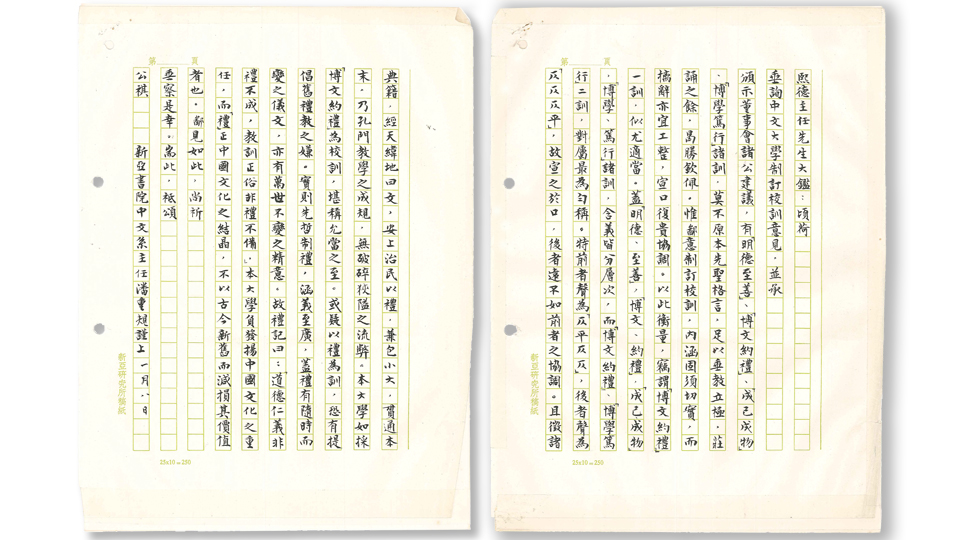 第　　頁
熙德主任先生大鑑：頃荷
垂詢中文大學制訂校訓意見，並承
頒示董事會諸公建議，有「明德至善」、「博文約禮」、「成己成物」
、「博學篤行」諸訓，莫不原本先聖格言，足以垂教立極，莊
誦之餘，曷勝欽佩。惟鄙意制訂校訓，內涵固須切實，而
摛辭亦宜工整，宣口復貴協調。以此衡量，竊謂「博文約禮」
一訓，似尤適當。蓋「明德、至善」、「博文、約禮」、「成己、成物」
、「博學、篤行」諸訓，含義皆分層次，而「博文約禮」、「博學篤
行」二訓，對屬最為勻稱。特前者聲為「仄平仄仄」，後者聲為
「仄仄仄平」，故宣之於口，後者遠不如前者之協調。且徵諸
新亞研究所稿紙
25x10=250
第　　頁
典籍，經天緯地曰文，安上治民以禮，兼包小大，貫通本
末，乃孔門教學之成規，無破碎狹隘之流弊。本大學如採
「博文約禮」為校訓，堪稱允當之至。或疑以禮為訓，恐有提
倡舊禮教之嫌。實則先哲制禮，涵義至廣，蓋禮有隨時而
變之儀文，亦有萬世不變之精意。故禮記曰：「道德仁義非
禮不成，教訓正俗非禮不備。」本大學負發揚中國文化之重
任，而「禮」正中國文化之結晶，不以古今新舊而減損其價值
者也。鄙見如此，尚祈
垂察是幸。耑此，祗頌
公祺　　新亞書院中文系主任潘重規謹上　一月八日
新亞研究所稿紙
25x10=250